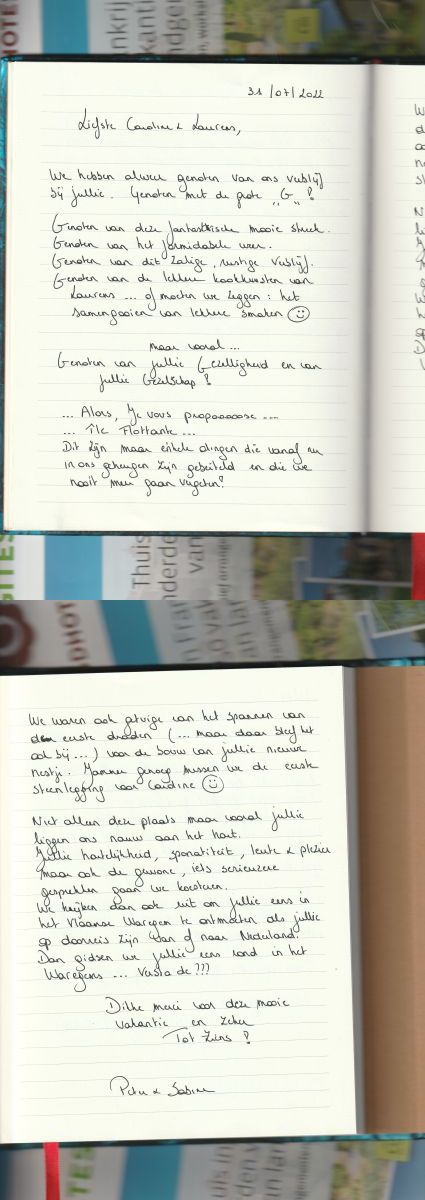 31/07/2022
Liefste Caroline & Laurens,
We hebben alweer genoten van ons verblijf
bij jullie. Genoten met de grote "G"!
Genoten van deze fantastische mooie streek.
Genoten van het formidabele weer.
Genoten van dit zalige, rustige verblijf.
Genoten van de lekkere kookkunsten van
Laurens ... of moeten we zeggen: het
samengooien van lekkere smaken ☺
maar vooral ...
Genoten van jullie Gezelligheid en van
jullie Gezelschap!
... Alors, Je vous propoooose ....
... Île Flottante ...
Dit zijn maar enkele dingen die vanaf nu
in ons geheugen zijn gebeiteld en die we
nooit meer gaan vergeten!
We waren ook getuige van het spannen van
de eerste draden (... maar daar bleef het
ook bij ...) voor de bouw van jullie nieuwe
nestje. Jammer genoeg missen we de eerste
steenlegging van Caroline ☺
Niet alleen deze plaats maar vooral jullie
liggen ons nauw aan het hart.
Jullie hartelijkheid, sponatiteit, leute & plezier
maar ook de gewone, iets serieuzere
gesprekken gaan we koesteren.
We kijken dan ook uit om jullie eens in
het Vlaamse Waregem te ontmoeten als jullie
op doorreis zijn van of naar Nederland.
Dan gidsen we jullie eens rond in het
Waregems ... Vasta de???
Dikke merci voor deze mooie
vakantie en zeker
Tot Ziens!
Peter & Sabine